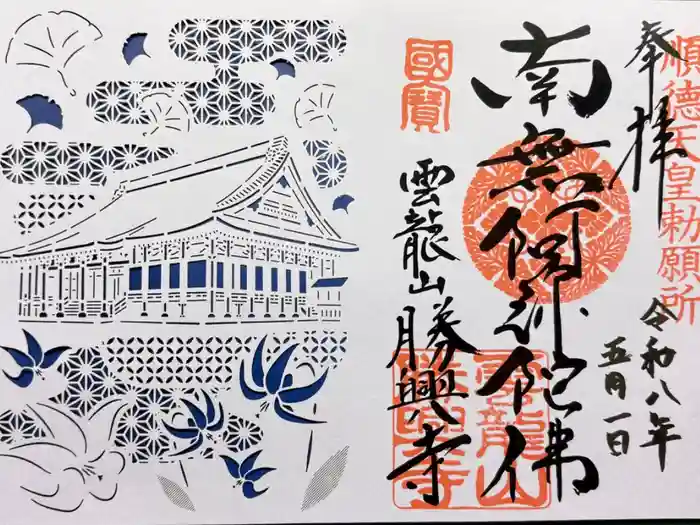 順德天皇勅願所
奉拝
令和八年
五月一日
南無阿弥陀佛
國寶
雲龍山勝興寺
雲龍山
勝興寺